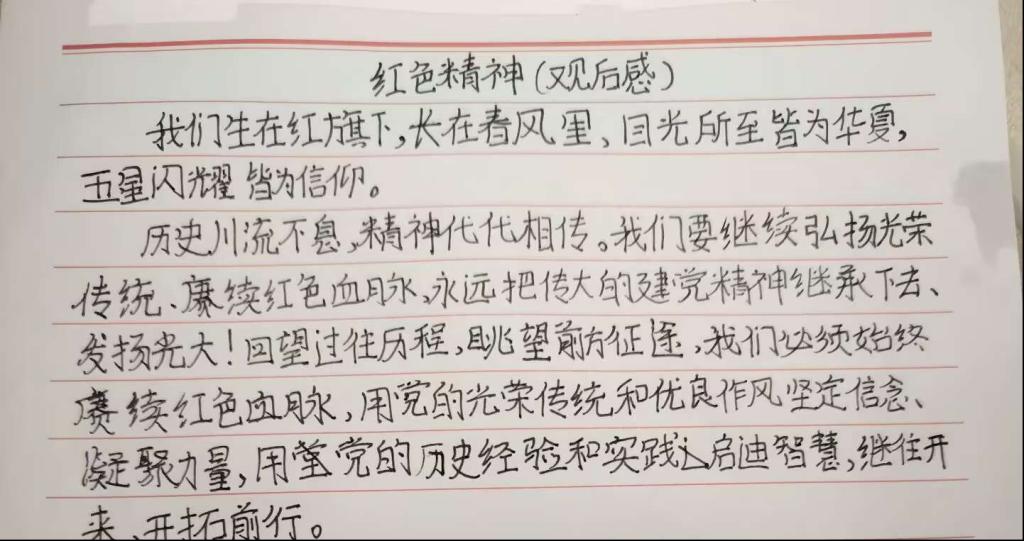 红色精神(观后感)
我们生在红旗下,长在春风里、目光所至皆为华夏,
五星闪耀皆为信仰。
历史川流不息,精神代代相传。我们要继续弘扬光荣
传统、赓续红色血脉,永远把传大的建党精神继承下去、
发扬光大!回望过往历程,眺望前方征途,我们必须始终
赓续红色血脉,用党的光荣传统和优良作风坚定信念、
凝聚力量,用党的历史经验和实践启迪智慧,继往开
来、开拓前行。